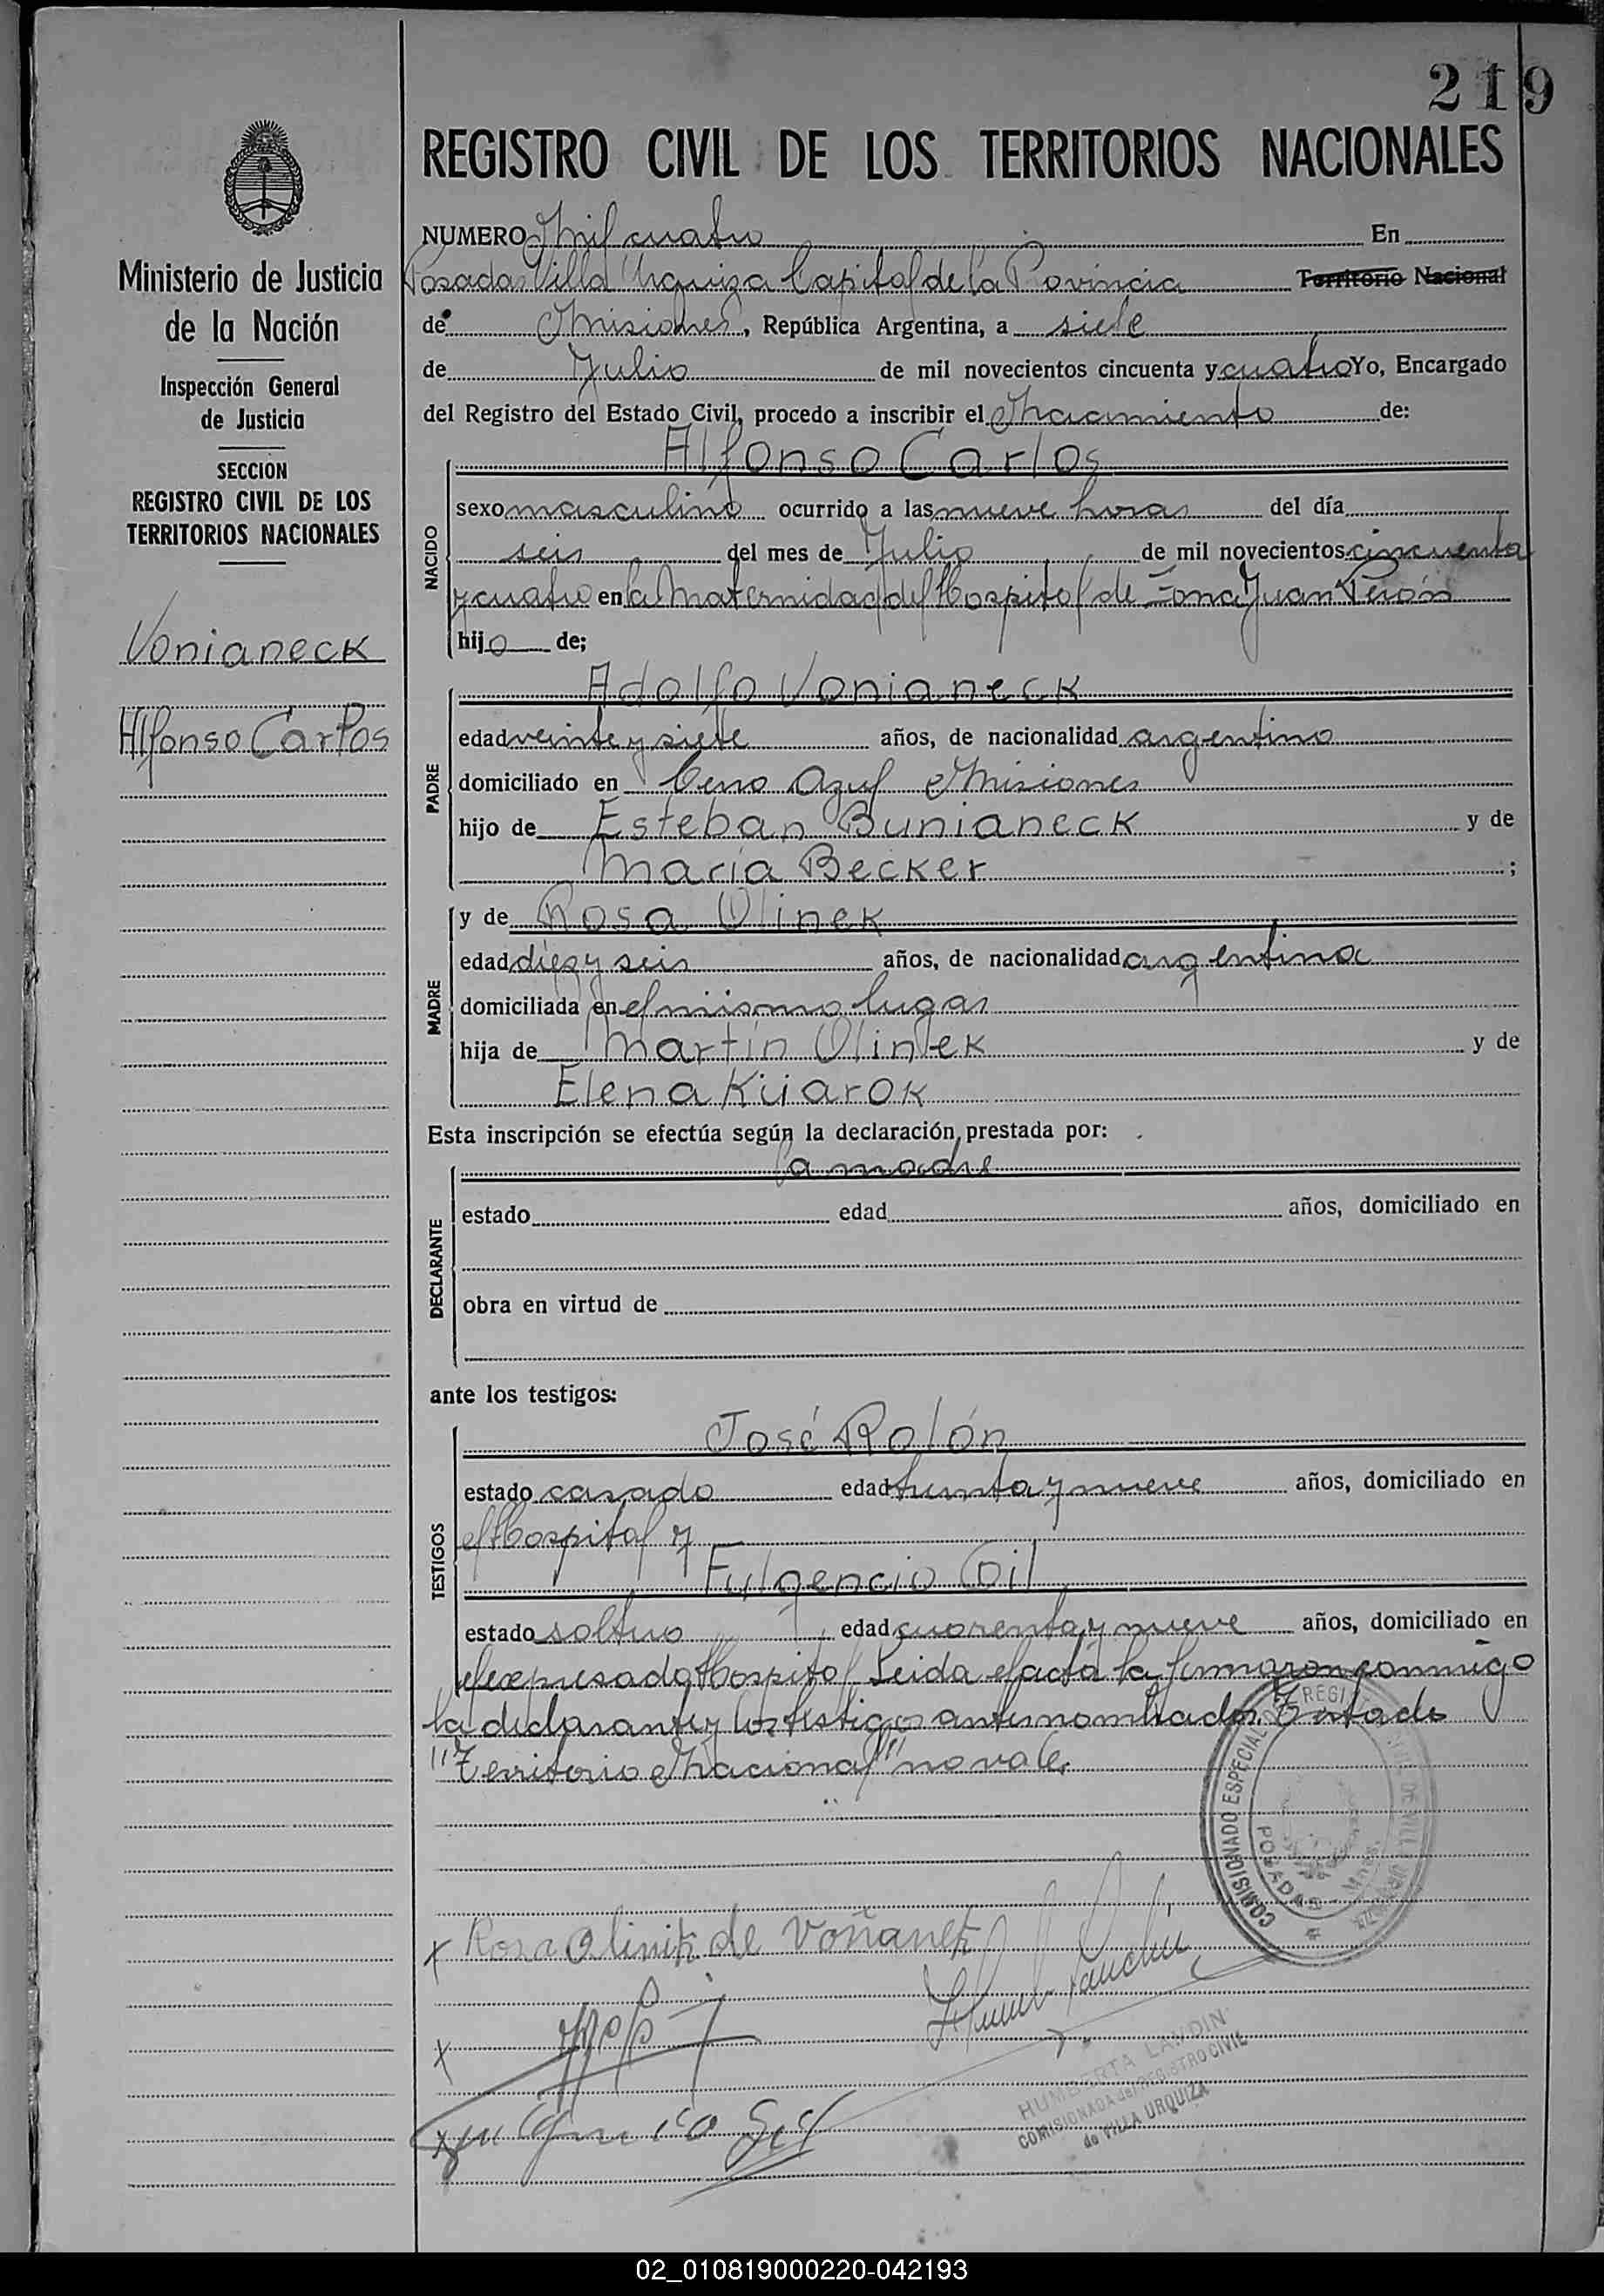 219
REGISTRO CIVIL DE LOS TERRITORIOS NACIONALES
Ministerio de Justicia
de la Nación
Inspección General
de Justicia
SECCION
REGISTRO CIVIL DE LOS
TERRITORIOS NACIONALES
Vonianeck
Alfonso Carlos
NUMERO Mil cuatro En
Posadas Villa Urquiza Capital de la Provincia Territorio Nacional
de Misiones, República Argentina, a siete
de Julio de mil novecientos cincuenta y cuatro Yo, Encargado
del Registro del Estado Civil, procedo a inscribir el Nacimiento de:
Alfonso Carlos
NACIDO
sexo masculino ocurrido a las nueve horas del día
seis del mes de Julio de mil novecientos cincuenta
y cuatro en la Maternidad del Hospital de Zona Juan Perón
hijo de;
Adolfo Vonianeck
PADRE
edad veinte y siete años, de nacionalidad argentino
domiciliado en Cerro Azul Misiones
hijo de Esteban Bunianeck y de
María Becker ;
MADRE
y de Rosa Olinek
edad diez y seis años, de nacionalidad argentina
domiciliada en el mismo lugar
hija de Martín Olinek y de
Elena Kuarok
Esta inscripción se efectúa según la declaración prestada por:
la madre
DECLARANTE
estado edad años, domiciliado en
obra en virtud de
ante los testigos:
José Rolón
TESTIGOS
estado casado edad treinta y nueve años, domiciliado en
el Hospital y
Fulgencio Gil
estado soltero edad cuarenta y nueve años, domiciliado en
el expresado Hospital. Leida el acta la firmaron conmigo
la declarante y los testigos antes nombrados. Testado
"Territorio Nacional" no vale.
COMISIONADO ESPECIAL DEL REGISTRO CIVIL DE VILLA URQUIZA
POSADAS - Mnes.
x Rosa Olinik de Voñanek
x
x Fulgencio Gil
HUMBERTA LANDIN
COMISIONADA del REGISTRO CIVIL
de VILLA URQUIZA
02_010819000220-042193